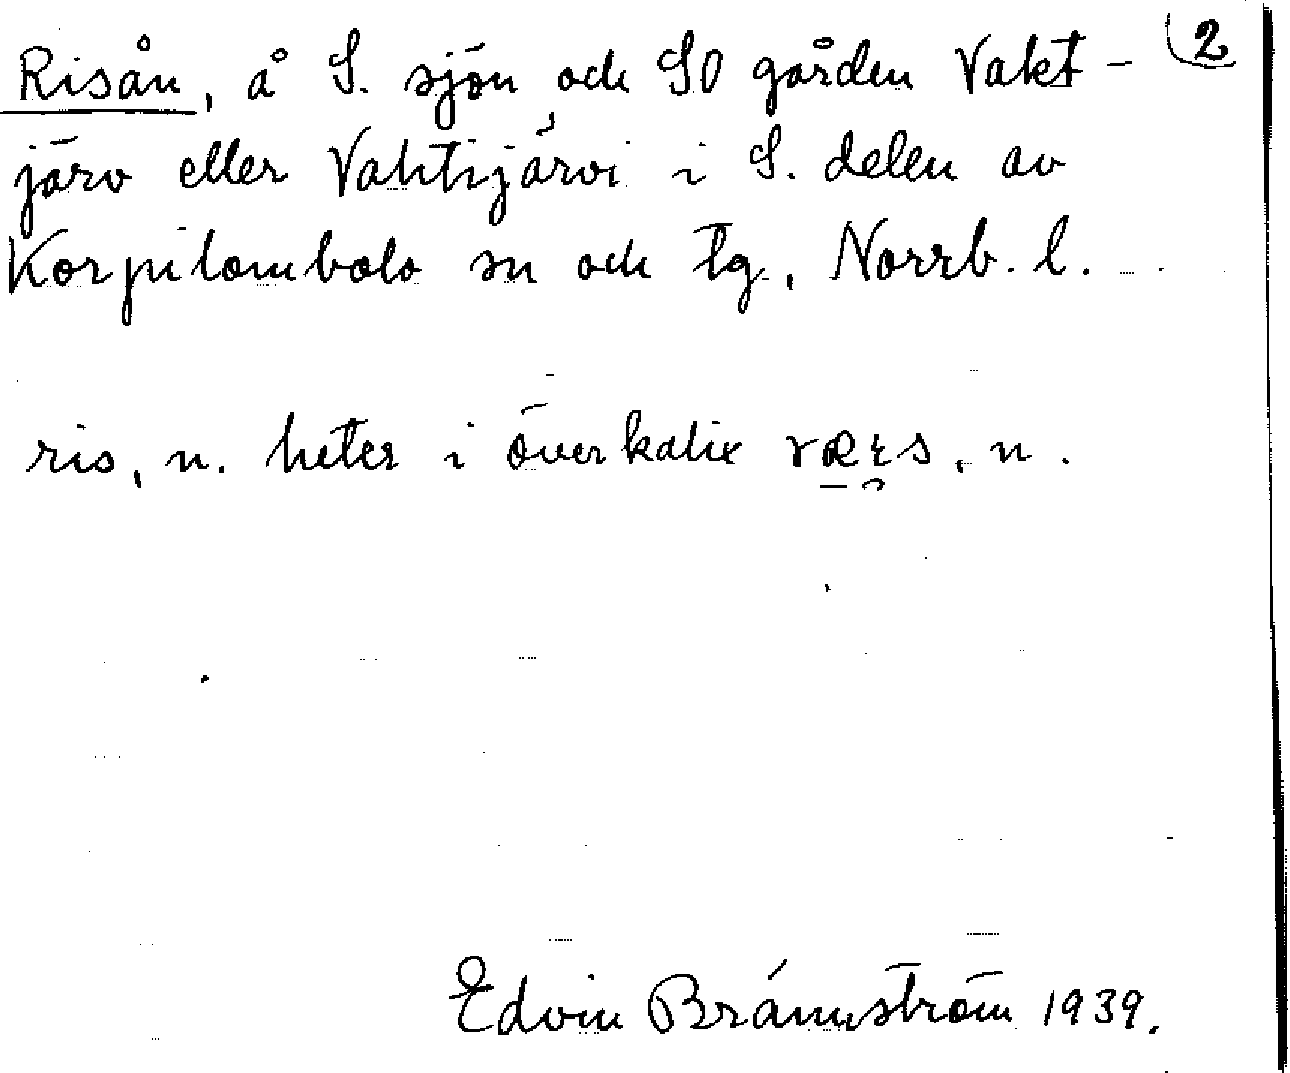 Risån, å S. sjön och SO gården Vakt- 2
järv eller Vahtijärvi i S. delen av
Korpilombolo sn och tg., Norrb. l.
ris, n. heter i överkalix , n.
Edvin Brännström 1939.